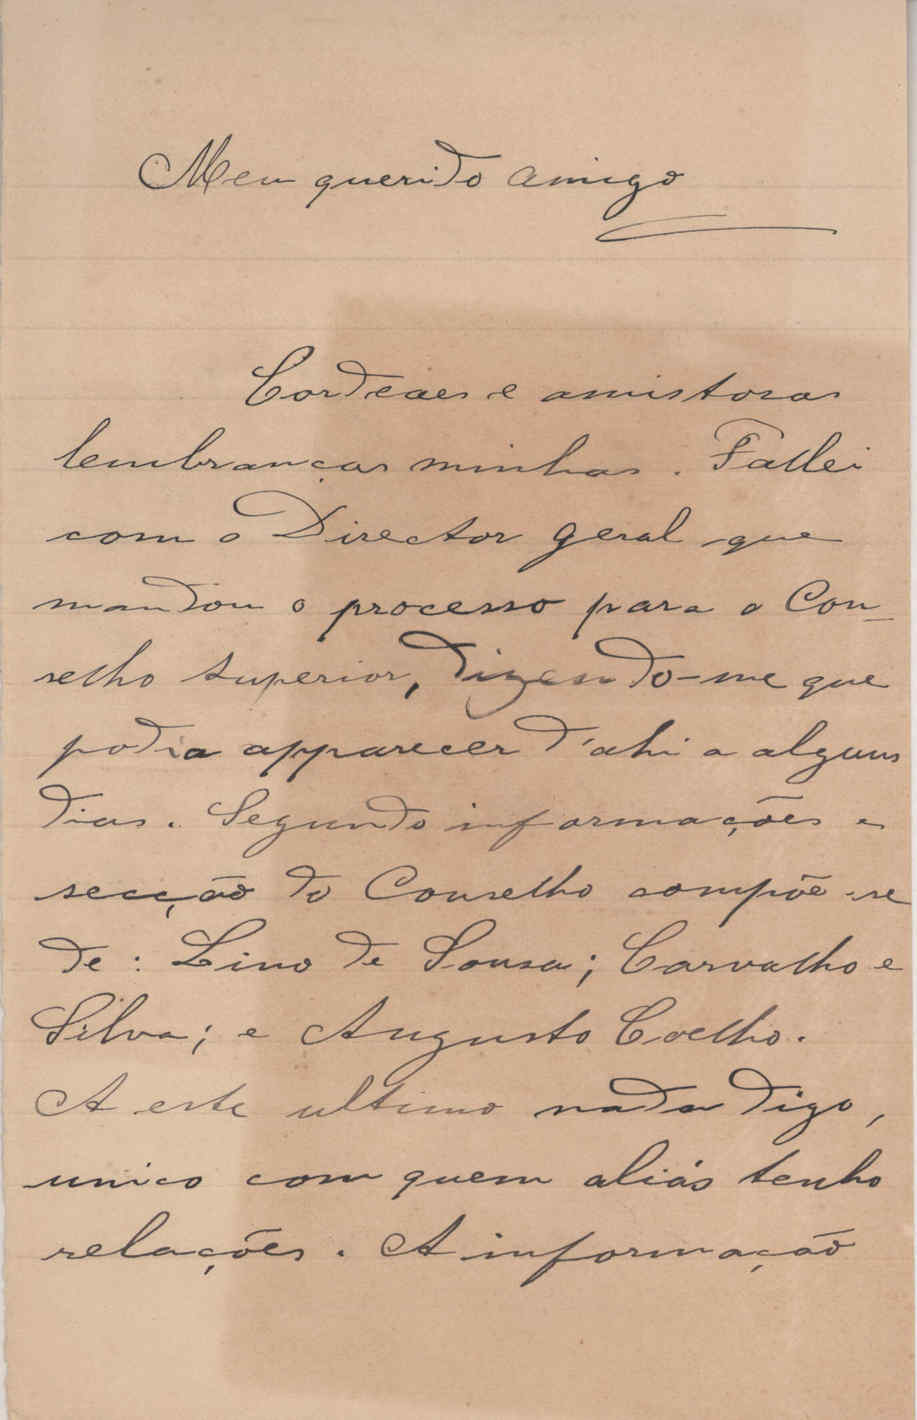 Meu querido amigo
Cordeaes e amistosas
lembranças minhas. Fallei
com o Director geral que
mandou o processo para o Con-
selho superior, dizendo-me que
podia apparecer d'ahi a alguns
dias. Segundo informações a
secção do Conselho compõe-se
de: Lino de Sousa; Carvalho e
Silva; e Augusto Coelho.
A este ultimo nada digo,
unico com quem aliás tenho
relações. A informação